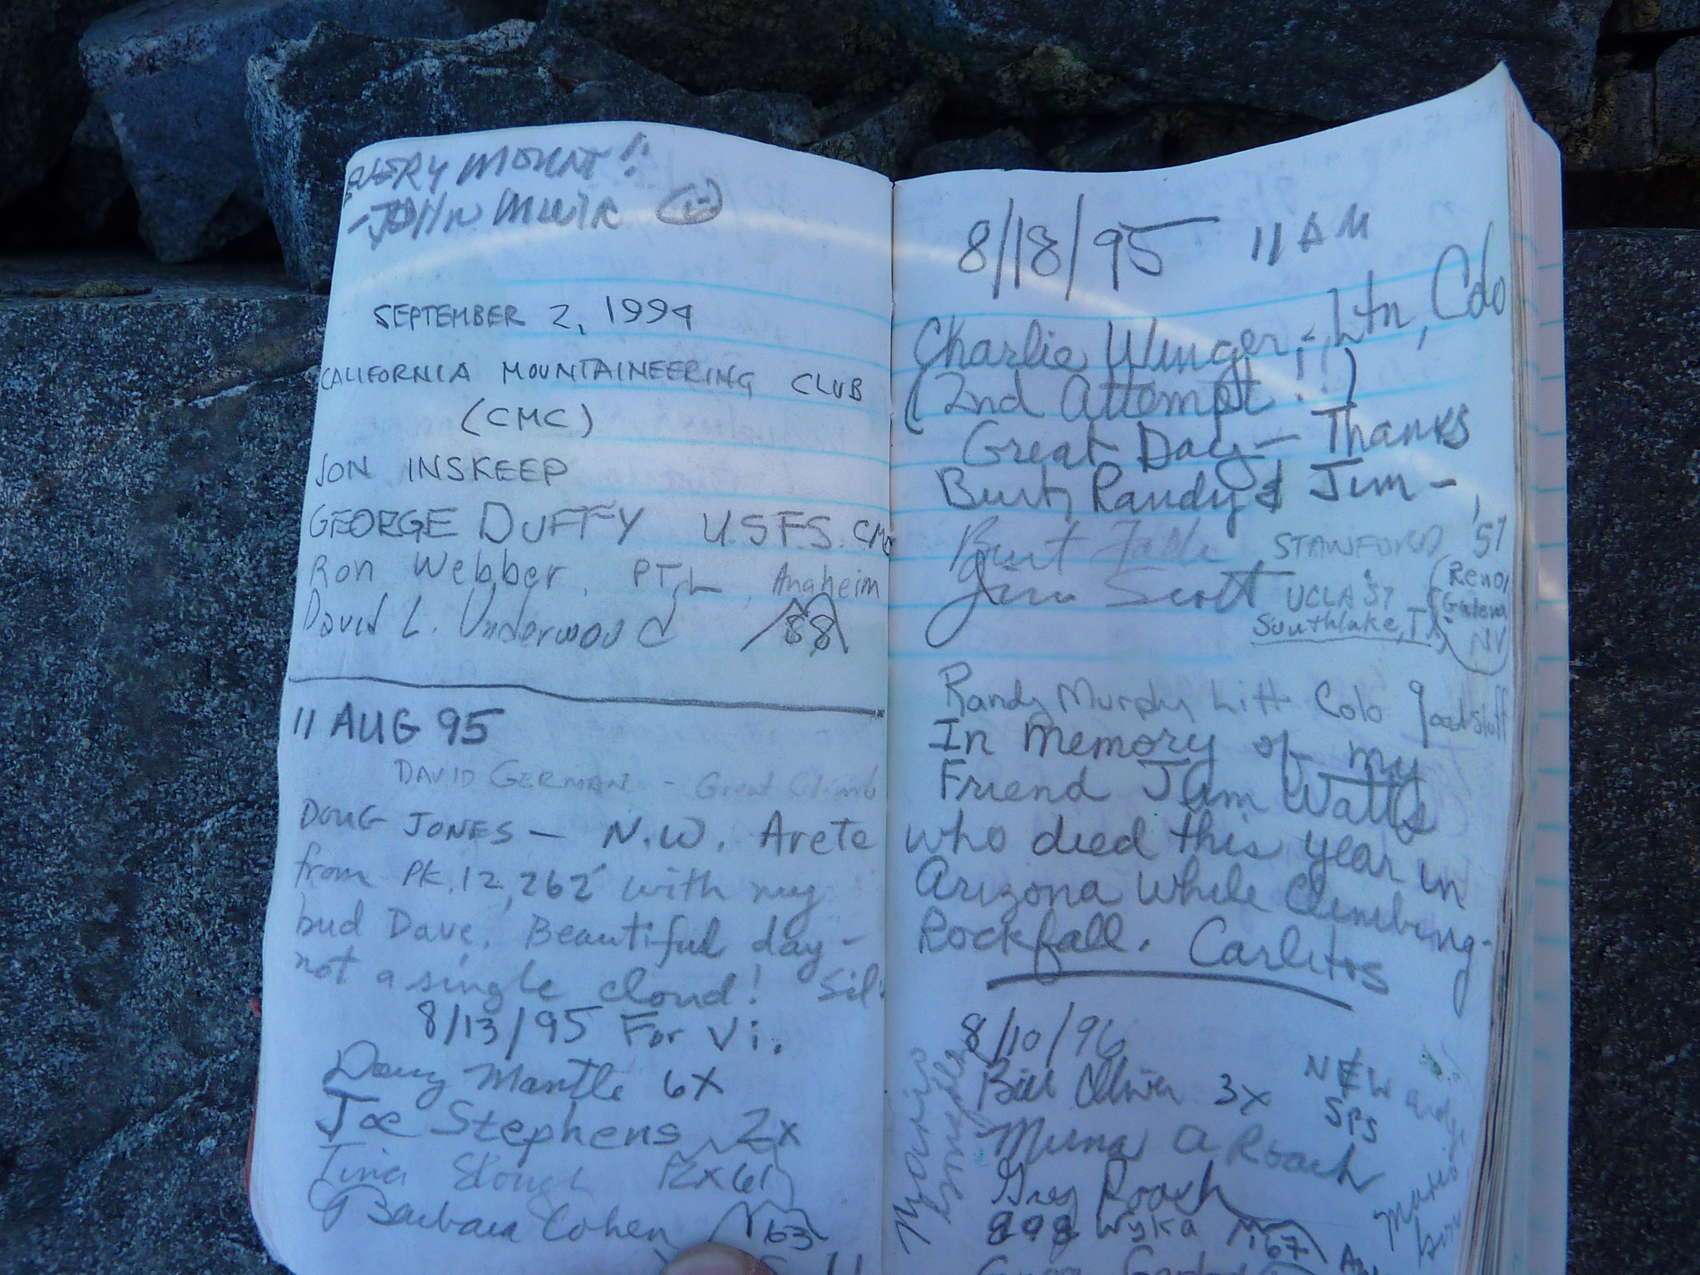 EVERY MOUNT!
-JOHN MUIR
SEPTEMBER 2, 1994
CALIFORNIA MOUNTAINEERING CLUB
(CMC)
JON INSKEEP
GEORGE DUFFY U.S.F.S. CMC
Ron Webber, PTL, Anaheim
David L. Underwood 88
11 AUG 95
DAVID GERMAN - Great Climb
DOUG JONES - N.W. Arete
from PK.12,262' with my
bud Dave. Beautiful day -
not a single cloud!
8/13/95 For Vi.
Doug Mantle 6X
Joe Stephens 2x
Tina Stough 12x61
Barbara Cohen 63
8/18/95 11 AM
Charlie Winger - Ltn, Colo
(2nd Attempt!!)
Great Day - Thanks
Burt, Randy & Jim -
Burt Falk STANFORD '57
Jim Scott UCLA 57
Southlake, TX
Reno,
NV
Randy Murphy Litt Colo
In memory of my
Friend Jim Watts
who died this year in
Arizona while Climbing -
Rockfall. Carlitos
8/10/96
Bill Oliver 3x
SPS
Mirna A Roach
Greg Roach
Wyka 67
Mario